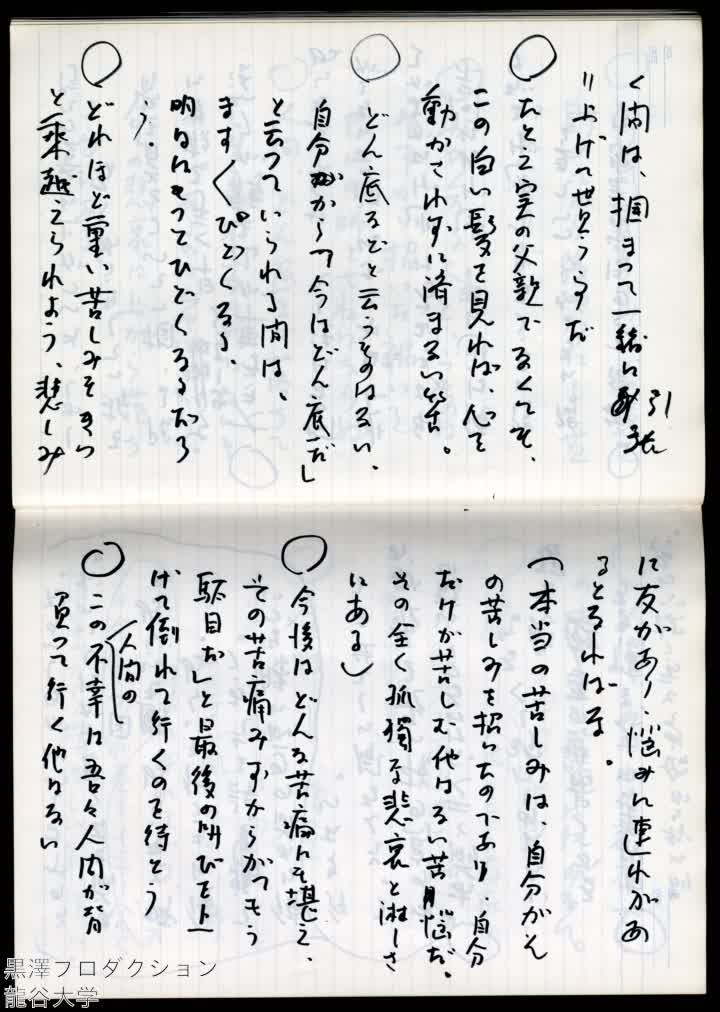 く間は、掴まって一緒に引張
り上げて貰うらずだ
たとえ実の父親でなくても、
この白い髪を見れば、心を
動かされずに済まない筈。
どん底などと云うものはない、
自分から「今はどん底だ」
と云っていられる間は、
ますくひどくなる、
明日になってひどくなるだろ
う。
どれほど重い苦しみをさら
と乗越えられよう、悲しみ
に友があり、悩みに連れがあ
るとなればな。
(本当の苦しみは、自分がそ
の苦しみを招いたのであり、自分
だけが苦しむ他はない苦悩だ。
その全く孤獨な悲哀と淋しさ
にある)
今後はどんな苦痛にも堪え、
その苦痛みずからが「もう
駄目だ」と最後の叫びを上
げて倒れて行くのを待とう
人間の
この不幸は吾々人間が背
負って行く他はない
黒澤プロダクション
龍谷大学